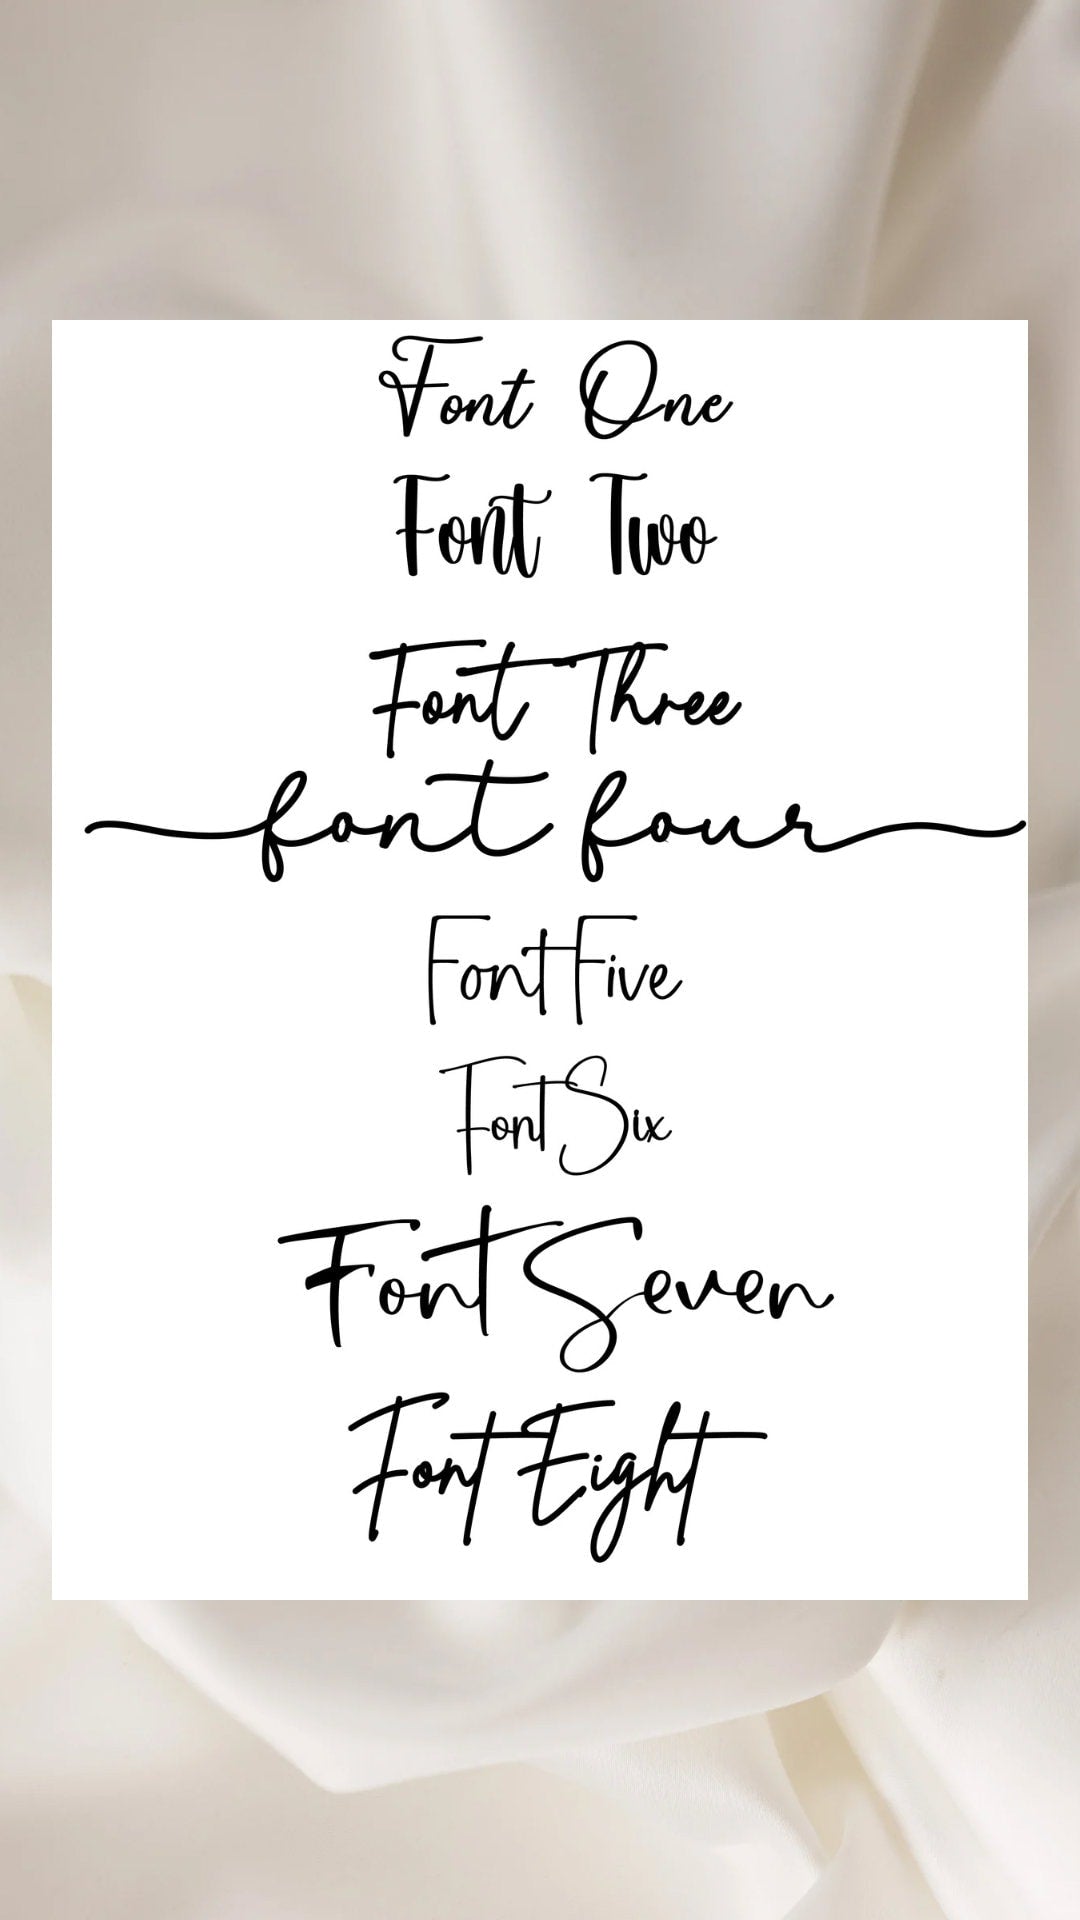 Font One
Font Two
Font Three
font four
Font Five
Font Six
Font Seven
Font Eight